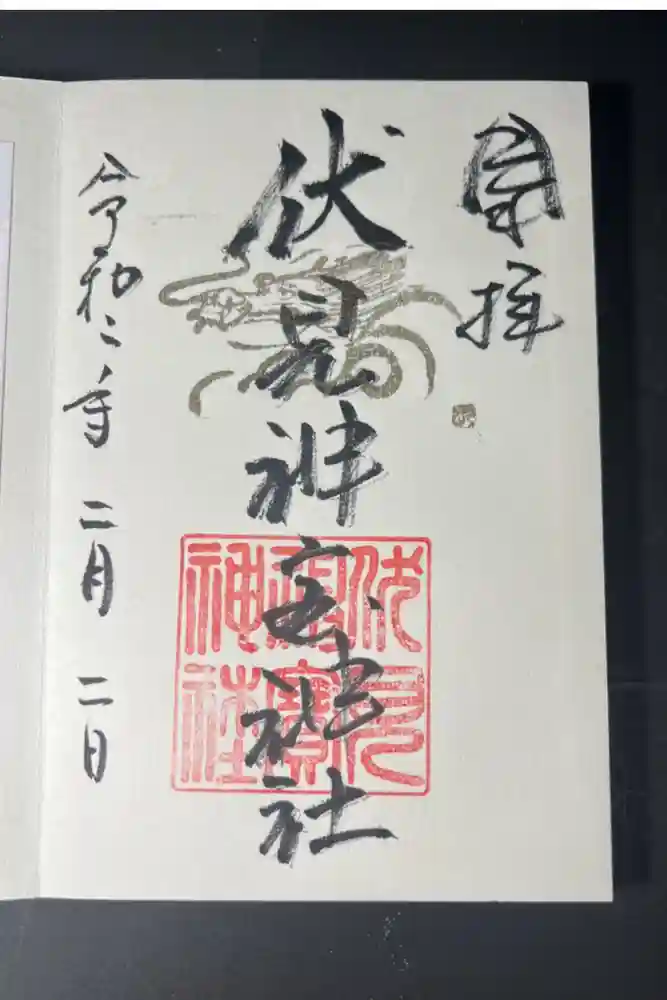 奉拝
伏見神宝神社
伏見神寶神社
令和二年 二月 二日